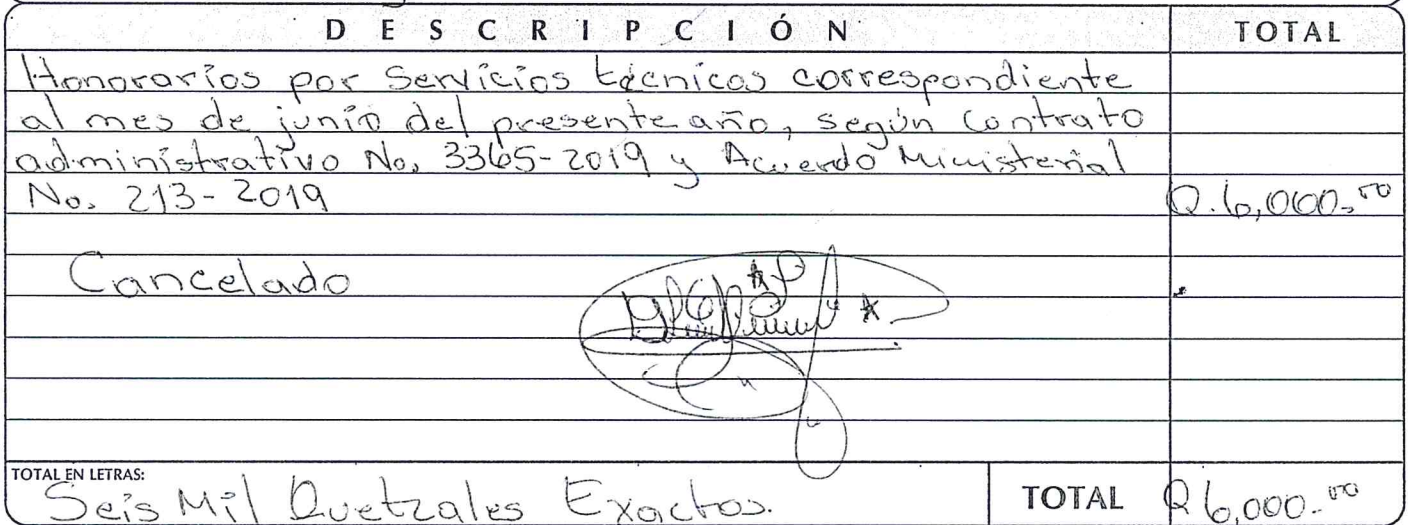 DESCRIPCIÓN TOTAL
Honorarios por Servicios técnicos correspondiente
al mes de junio del presente año, según Contrato
administrativo No. 3365-2019 y Acuerdo Ministerial
No. 213-2019 Q.6,000.00
Cancelado
TOTAL EN LETRAS:
Seis Mil Quetzales Exactos. TOTAL Q6,000.00